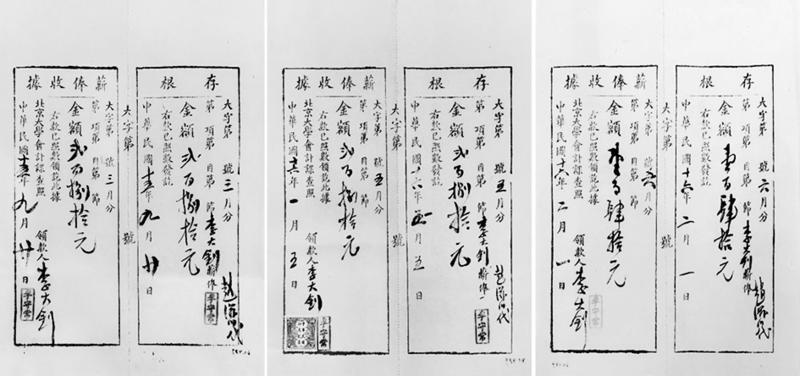 存根
大字第 號三月分
第 項第 目第 節 李大釗薪俸
金額弍百捌拾元
右款已照數發訖
中華民國十五年九月廿日
代
李守常
大字第 號
薪俸收據
大字第 號三月分
第 項第 目第 節
金額弍百捌拾元
右款已照數領訖此據
北京大學會計課查照
領款人李大釗
李守常
中華民國十五年九月廿日
存根
大字第 號五月分
第 項第 目第 節 李大釗薪俸
金額弍百捌拾元
右款已照數發訖
中華民國十六年 月五日
代
李守常
大字第 號
薪俸收據
大字第 號五月分
第 項第 目第 節
金額弍百捌拾元
右款已照數領訖此據
北京大學會計課查照
領款人李大釗
李守常
中華民國十六年一月五日
存根
大字第 號六月分
第 項第 目第 節 李大釗薪俸
金額壹百肆拾元
右款已照數發訖
中華民國十六年二月一日
代
大字第 號
薪俸收據
大字第 號六月分
第 項第 目第 節
金額壹百肆拾元
右款已照數領訖此據
北京大學會計課查照
領款人李大釗
李守常
中華民國十六年二月一日